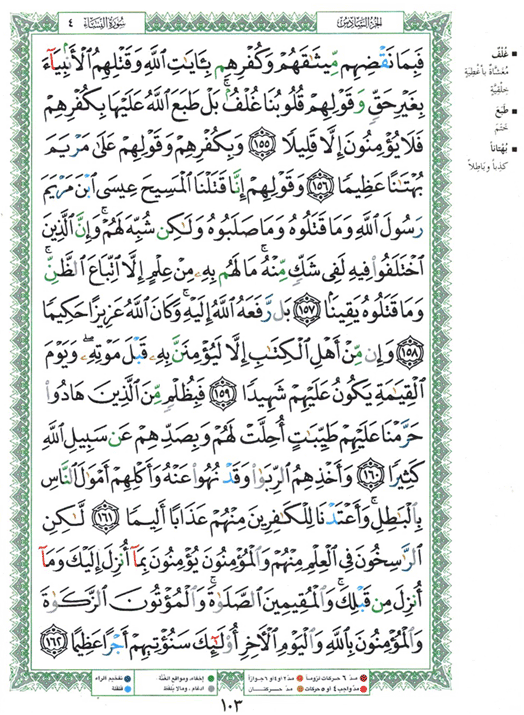 سُورَةُ النِّسَاء ٤
الجزء السادس
فَبِمَا نَقْضِهِم مِّيثَـٰقَهُمْ وَكُفْرِهِم بِـَٔايَـٰتِ ٱللَّهِ وَقَتْلِهِمُ ٱلْأَنۢبِيَآءَ
بِغَيْرِ حَقٍّ وَقَوْلِهِمْ قُلُوبُنَا غُلْفٌۢ ۚ بَلْ طَبَعَ ٱللَّهُ عَلَيْهَا بِكُفْرِهِمْ
فَلَا يُؤْمِنُونَ إِلَّا قَلِيلًا ١٥٥ وَبِكُفْرِهِمْ وَقَوْلِهِمْ عَلَىٰ مَرْيَمَ
بُهْتَـٰنًا عَظِيمًا ١٥٦ وَقَوْلِهِمْ إِنَّا قَتَلْنَا ٱلْمَسِيحَ عِيسَى ٱبْنَ مَرْيَمَ
رَسُولَ ٱللَّهِ وَمَا قَتَلُوهُ وَمَا صَلَبُوهُ وَلَـٰكِن شُبِّهَ لَهُمْ ۚ وَإِنَّ ٱلَّذِينَ
ٱخْتَلَفُوا۟ فِيهِ لَفِى شَكٍّ مِّنْهُ ۚ مَا لَهُم بِهِۦ مِنْ عِلْمٍ إِلَّا ٱتِّبَاعَ ٱلظَّنِّ ۚ
وَمَا قَتَلُوهُ يَقِينًۢا ١٥٧ بَل رَّفَعَهُ ٱللَّهُ إِلَيْهِ ۚ وَكَانَ ٱللَّهُ عَزِيزًا حَكِيمًا
١٥٨ وَإِن مِّنْ أَهْلِ ٱلْكِتَـٰبِ إِلَّا لَيُؤْمِنَنَّ بِهِۦ قَبْلَ مَوْتِهِۦ ۖ وَيَوْمَ
ٱلْقِيَـٰمَةِ يَكُونُ عَلَيْهِمْ شَهِيدًا ١٥٩ فَبِظُلْمٍ مِّنَ ٱلَّذِينَ هَادُوا۟
حَرَّمْنَا عَلَيْهِمْ طَيِّبَـٰتٍ أُحِلَّتْ لَهُمْ وَبِصَدِّهِمْ عَن سَبِيلِ ٱللَّهِ
كَثِيرًا ١٦٠ وَأَخْذِهِمُ ٱلرِّبَوٰا۟ وَقَدْ نُهُوا۟ عَنْهُ وَأَكْلِهِمْ أَمْوَٰلَ ٱلنَّاسِ
بِٱلْبَـٰطِلِ ۚ وَأَعْتَدْنَا لِلْكَـٰفِرِينَ مِنْهُمْ عَذَابًا أَلِيمًا ١٦١ لَّـٰكِنِ
ٱلرَّٰسِخُونَ فِى ٱلْعِلْمِ مِنْهُمْ وَٱلْمُؤْمِنُونَ يُؤْمِنُونَ بِمَآ أُنزِلَ إِلَيْكَ وَمَآ
أُنزِلَ مِن قَبْلِكَ ۚ وَٱلْمُقِيمِينَ ٱلصَّلَوٰةَ ۚ وَٱلْمُؤْتُونَ ٱلزَّكَوٰةَ
وَٱلْمُؤْمِنُونَ بِٱللَّهِ وَٱلْيَوْمِ ٱلْـَٔاخِرِ أُو۟لَـٰٓئِكَ سَنُؤْتِيهِمْ أَجْرًا عَظِيمًا ١٦٢
غُلْفٌ
مُغَشَّاةٌ بأغطِيَةٍ
خِلْقِيَّةٍ
طَبَعَ
خَتَمَ
بُهْتَاناً
كَذِباً وَبَاطِلاً
مدّ ٦ حركات لزوماً
مدّ ٢ أو ٤ أو ٦ جوازاً
إخفاء، ومواقع الغُنَّة
تفخيم الراء
مدّ واجب ٤ أو ٥ حركات
مدّ حركتان
ادغام، ومالا يُلفَظ
قلقلة
١٠٣